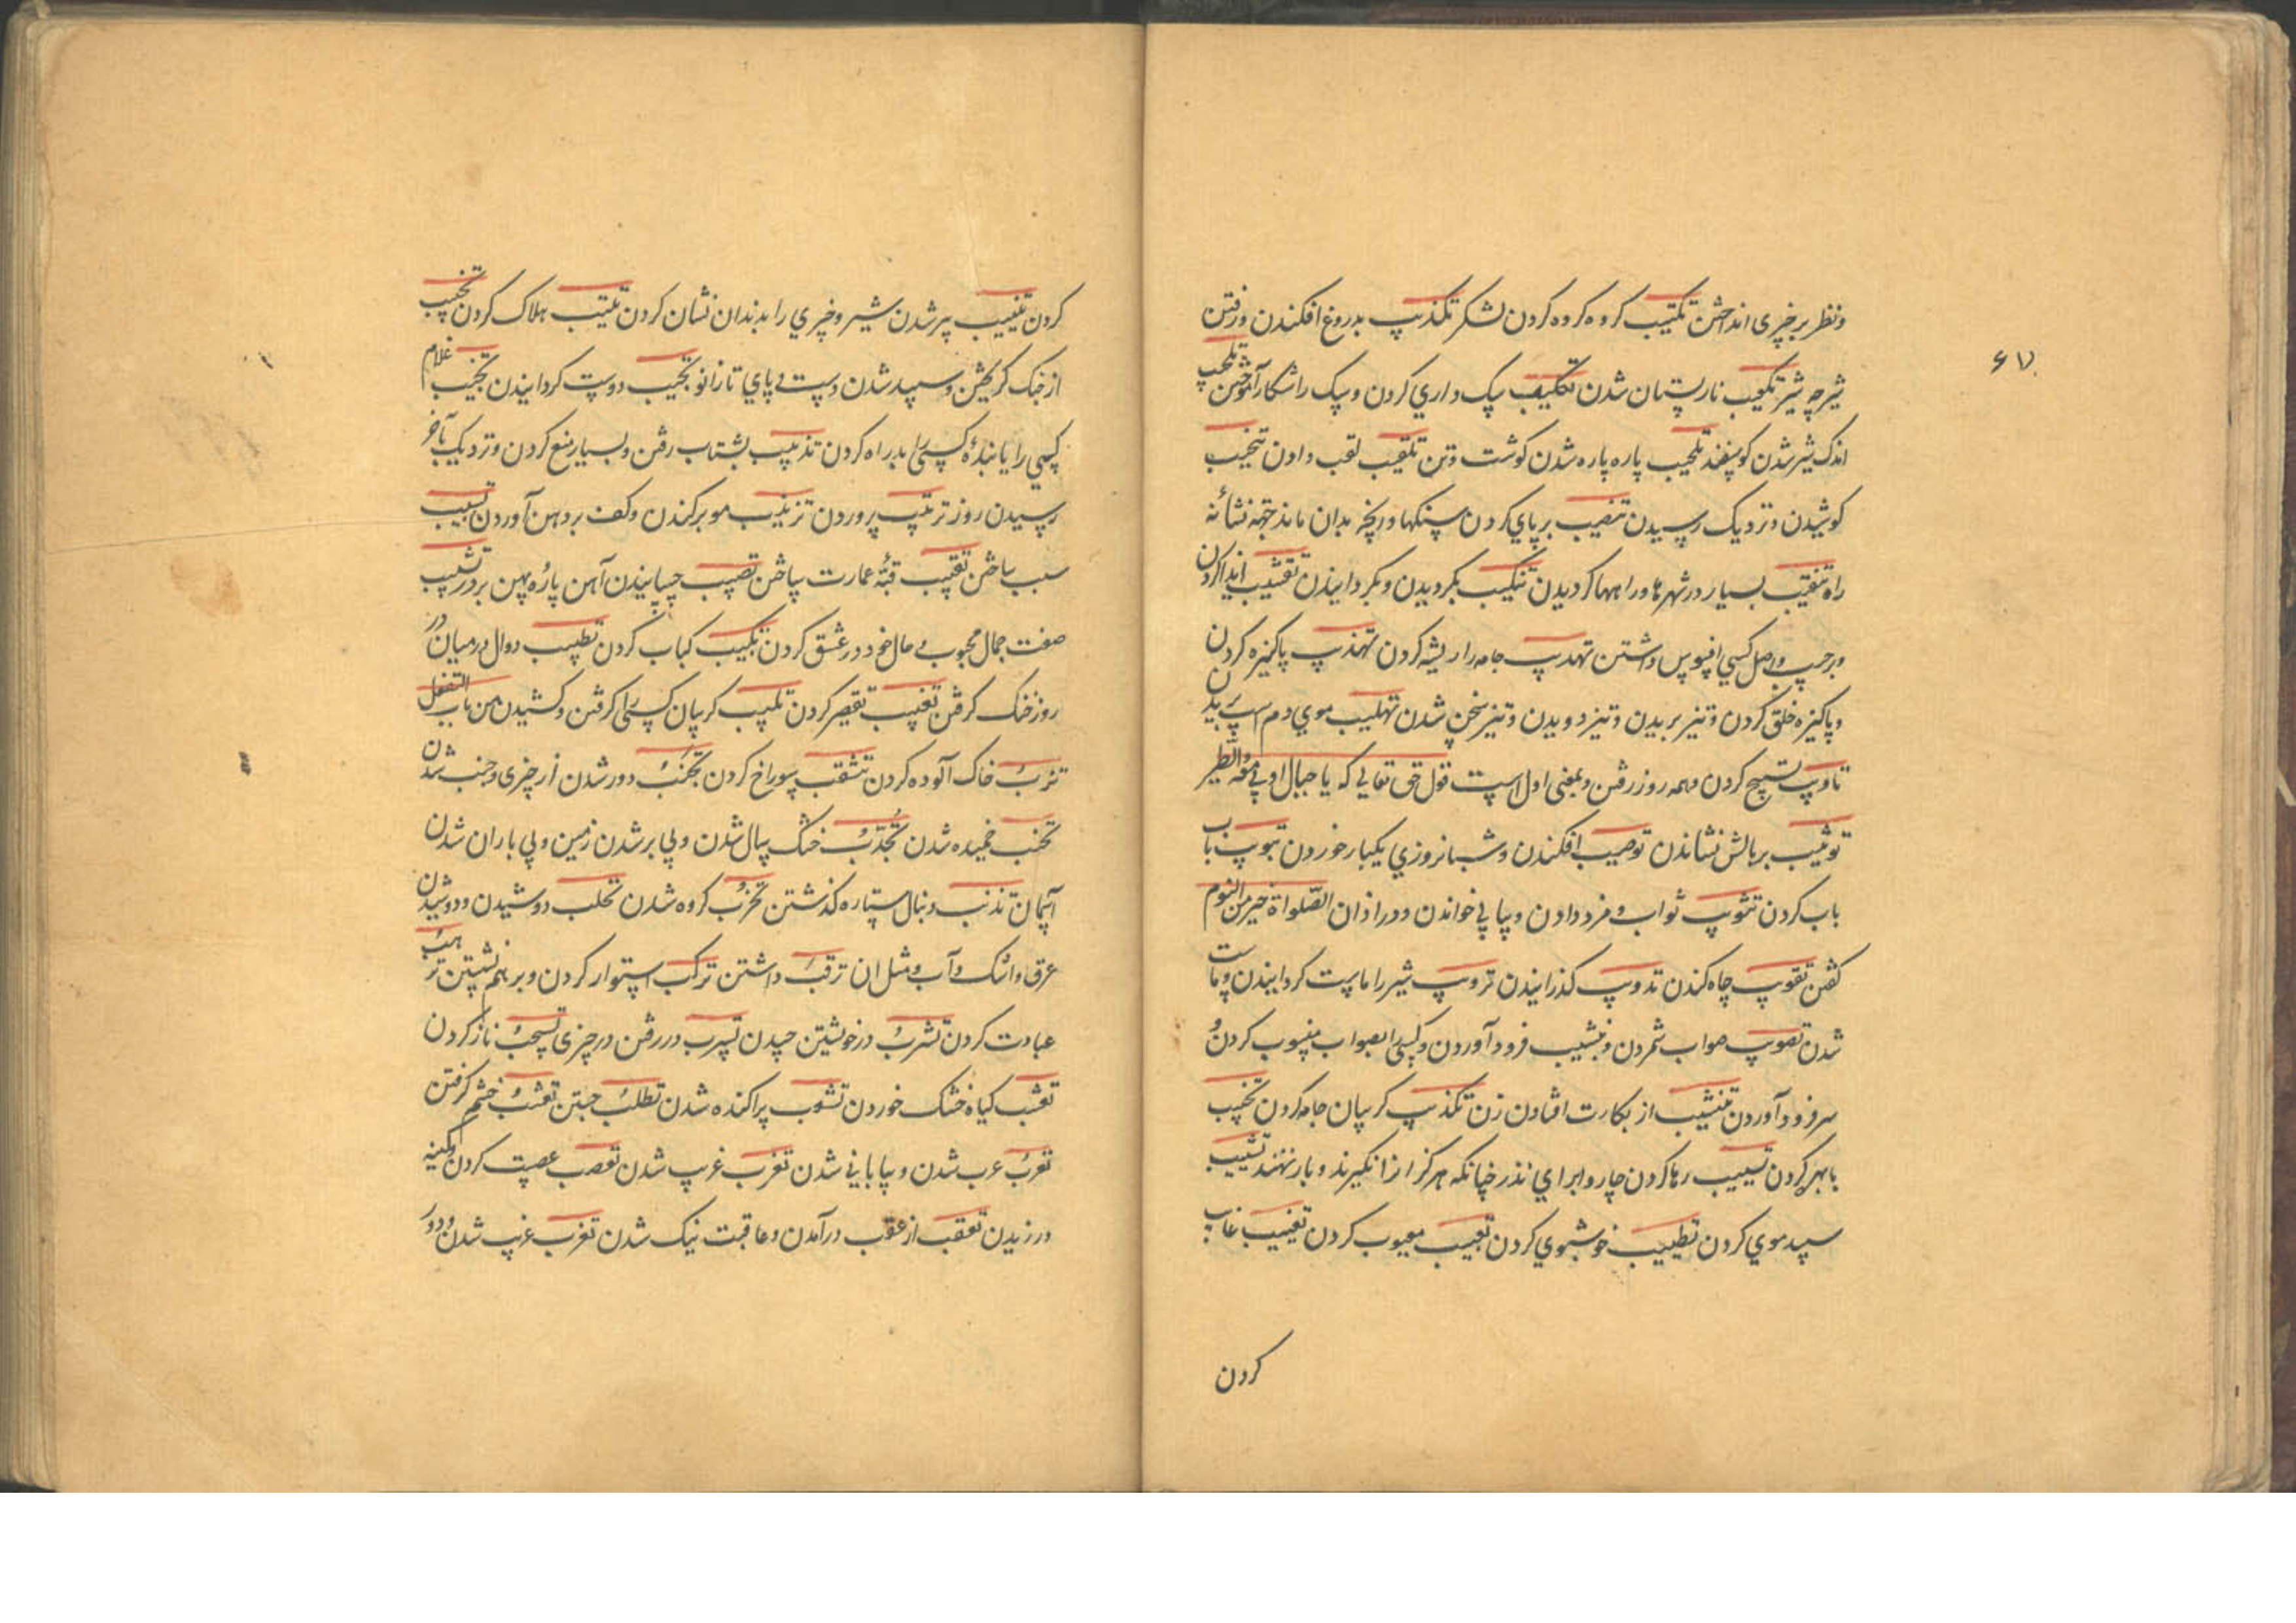 ۶۷
ونظر بر چیزی انداختن تکتیب کروه کروه کردن لشکر تکذیب بدروغ افکندن ورفتن
شیرچه شیر تکعیب نارپستان شدن تکلیب سک داری کردن وسک را شکار آموختن تلحیب
اندک شیر شدن کوسفند تلحیب پاره پاره شدن کوشت وتن تلقیب لقب دادن تنحیب
کوشیدن ونزدیک رسیدن تنصیب برپای کردن سنکها وریخه بدان ماند جهة نشانه
راه تنقیب بسیار در شهرها وراهها کردیدن تنکیب بکردیدن وبکردانیدن
وبر حسب واصل کسی افسوس داشتن تهدیب جامه را ریشه کردن تهذیب پاکیزه کردن
وپاکیزه خلق کردن وتیز بریدن وتیز دویدن وتیز سخن شدن تهلیب موی دم اسب
تاویب تسبیح کردن وهمه روز رفتن وبمعنی اول است قول حق تعالی که یا جبال اوبی معه والطیر
توثیب بر بالش نشاندن توصیب افکندن وشبانروزی یکبار خوردن تبویب باب
باب کردن تثویب ثواب ومزد دادن وپیاپی خواندن ودر اذان الصلواة خیر من النوم
کفتن تقویب چاه کندن تدویب کذرانیدن ترویب شیر را ماست کردانیدن وماست
شدن تصویب صواب شمردن ونشیب فرود آوردن وکسی را بصواب منسوب کردن و
سر فرود آوردن تنشیب از بکارت افتادن زن تکذیب کریبان جامه کردن تخییب
بی بهر کردن تسییب رها کردن چاروا برای نذر چنانکه هرکز از انکیرند وبار ننهند تشییب
سپید موی کردن تطییب خوشبوی کردن تعییب معیوب کردن تغییب غایب
کردن
کردن تنییب پیر شدن شتر وچیزی را بدندان نشان کردن تتبیب هلاک کردن تجبیب
از جنک کریختن وسپید شدن دست وپای تا زانو تحبیب دوست کردانیدن تخبیب غلام
کسی را یا بندهٔ کسی را بدراه کردن تذبیب بشتاب رفتن وبسیار منع کردن ونزدیک بآخر
رسیدن روز تربیب پروردن تزبیب مو برکندن وکف بر دهن آوردن تسبیب
سبب ساختن تقبیب قبهٔ عمارت ساختن تضبیب چسپانیدن آهن پارهٔ پهن بر در تشبیب
صفت جمال محبوب وحال خود در عشق کردن تکبیب کباب کردن تطبیب دوال در میان درز
روز خنک کرفتن تغبیب تقصیر کردن تلبیب کریبان کسی را کرفتن وکشیدن من باب التفعل
تترب خاک آلوده کردن تثقب سوراخ کردن تجنب دور شدن از چیزی وجنب شدن
تحنب خمیده شدن تجدب خشک سال شدن وبی بر شدن زمین وبی باران شدن
آسمان تذنب دنبال ستاره کذشتن تحزب کروه شدن تحلب دوشیدن ودوشیدن
عرق واشک وآب ومثل ان ترقب داشتن ترکب استوار کردن وبر هم نشستن ترهب
عبادت کردن تشرب در خویشتن چیدن تسرب در رفتن در چیزی تسحب ناز کردن
تعشب کیاه خشک خوردن تشعب پراکنده شدن تطلب جستن تغضب خشم کرفتن
تعرب عرب شدن وبیابانی شدن تغرب غریب شدن تعصب عصبیت کردن وکینه
ورزیدن تعقب از عقوب درآمدن وعاقبت نیک شدن تغرب غریب شدن ودور